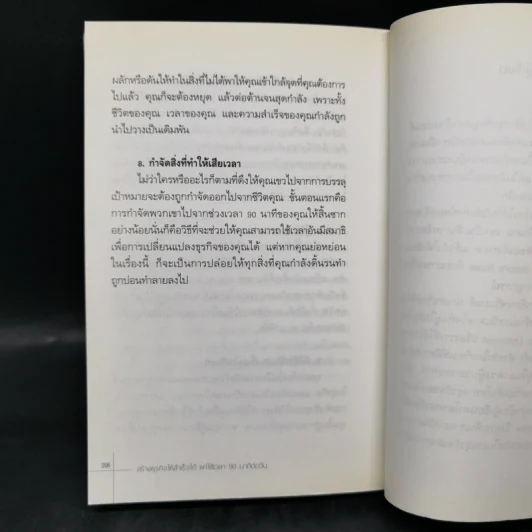 ผลักหรือดันให้ทำในสิ่งที่ไม่ได้พาให้คุณเข้าใกล้จุดที่คุณต้องการ
ไปแล้ว คุณก็จะต้องหยุด แล้วต่อต้านจนสุดกำลัง เพราะทั้ง
ชีวิตของคุณ เวลาของคุณ และความสำเร็จของคุณกำลังถูก
นำไปวางเป็นเดิมพัน
8. กำจัดสิ่งที่ทำให้เสียเวลา
ไม่ว่าใครหรืออะไรก็ตามที่ดึงให้คุณเขวไปจากการบรรลุ
เป้าหมายจะต้องถูกกำจัดออกไปจากชีวิตคุณ ขั้นตอนแรกคือ
การกำจัดพวกเขาไปจากช่วงเวลา 90 นาทีของคุณให้สิ้นซาก
อย่างน้อยนั่นก็คือวิธีที่จะช่วยให้คุณสามารถใช้เวลาอันมีสมาธิ
เพื่อการเปลี่ยนแปลงธุรกิจของคุณได้ แต่หากคุณย่อหย่อน
ในเรื่องนี้ ก็จะเป็นการปล่อยให้ทุกสิ่งที่คุณกำลังดิ้นรนทำ
ถูกบ่อนทำลายลงไป
สร้างธุรกิจให้สำเร็จได้ แค่ใช้เวลา 90 นาทีต่อวัน